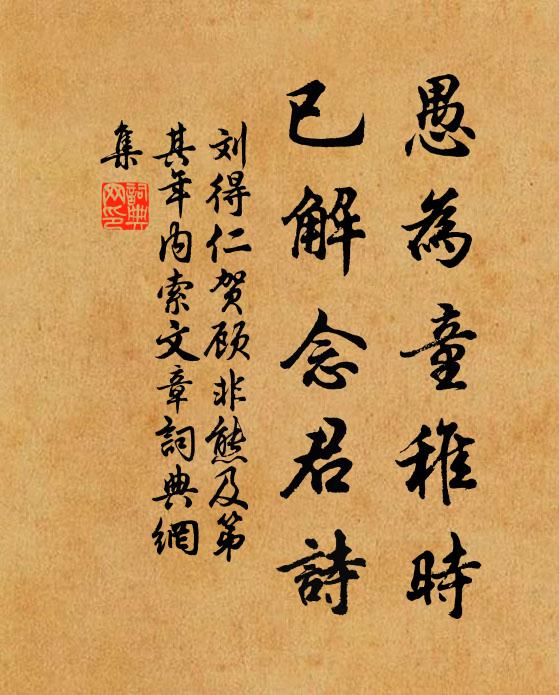 愚為童稚時
已解念君詩
刘得仁贺顾非熊及第
其年内索文章詞典網
集
詞典
网印